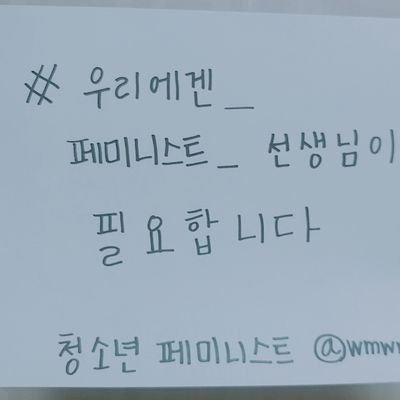 # 우리에겐_
페미니스트_ 선생님이
필요합니다
청소년 페미니스트 @wmwm